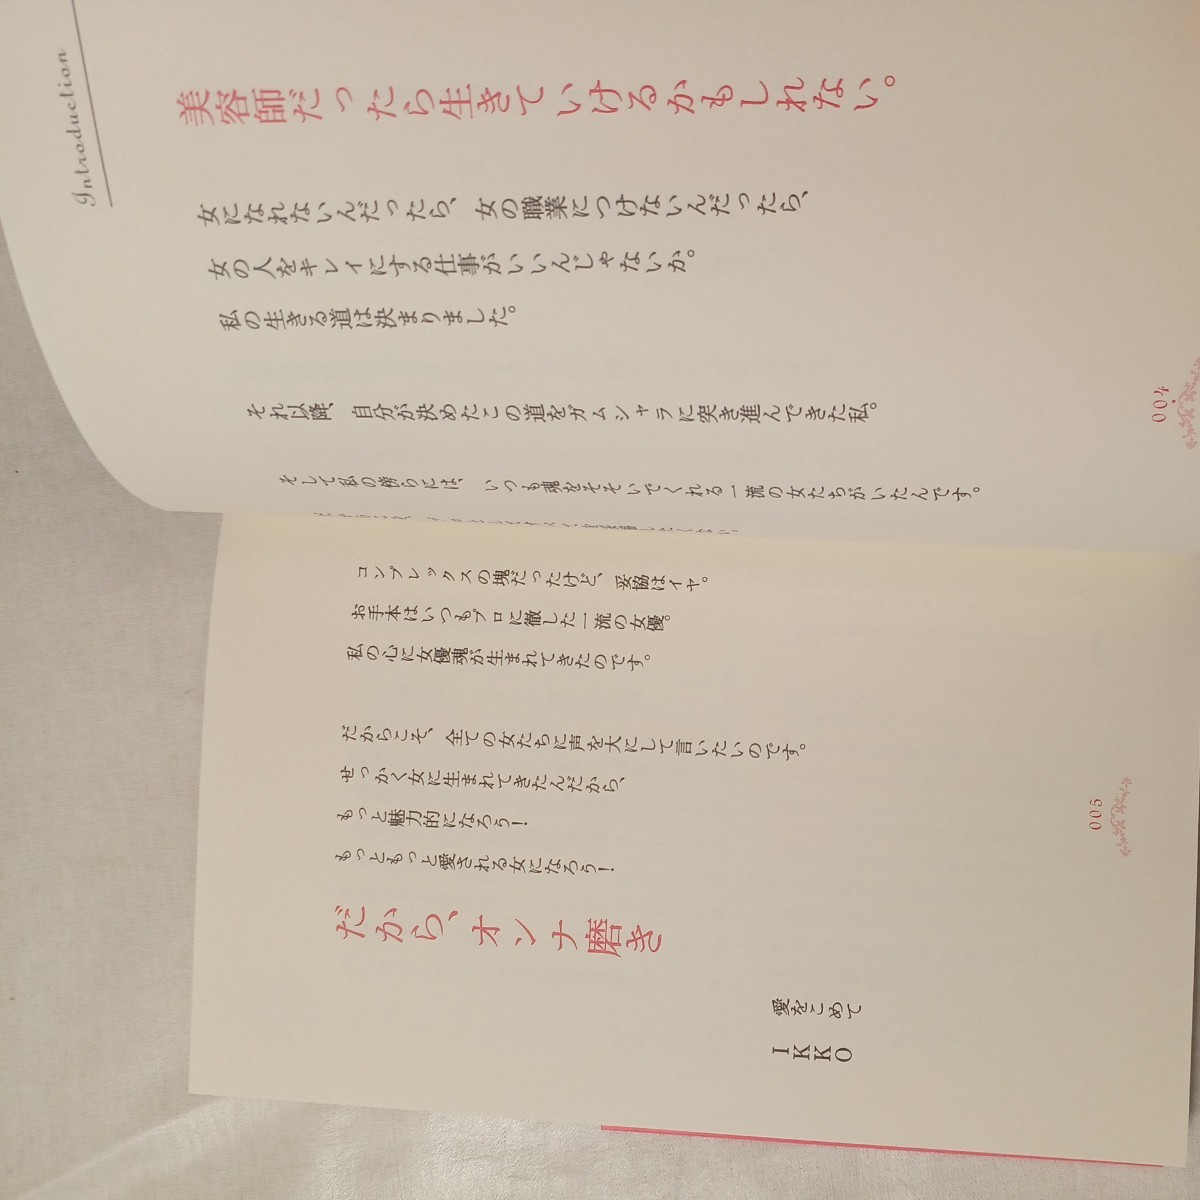 Introduction
美容師だったら生きていけるかもしれない。
女になれないんだったら、女の職業につけないんだったら、
女の人をキレイにする仕事がいいんじゃないか。
私の生きる道は決まりました。
それ以降、自分が決めたこの道をガムシャラに突き進んできた私。
そして私の傍らには、いつも魂をそそいでくれる一流の女たちがいたんです。
004
コンプレックスの塊だったけど、妥協はイヤ。
お手本はいつもプロに徹した一流の女優。
私の心に女優魂が生まれてきたのです。
だからこそ、全ての女たちに声を大にして言いたいのです。
せっかく女に生まれてきたんだから、
もっと魅力的になろう！
もっともっと愛される女になろう！
だから、オンナ磨き
愛をこめて
IKKO
005